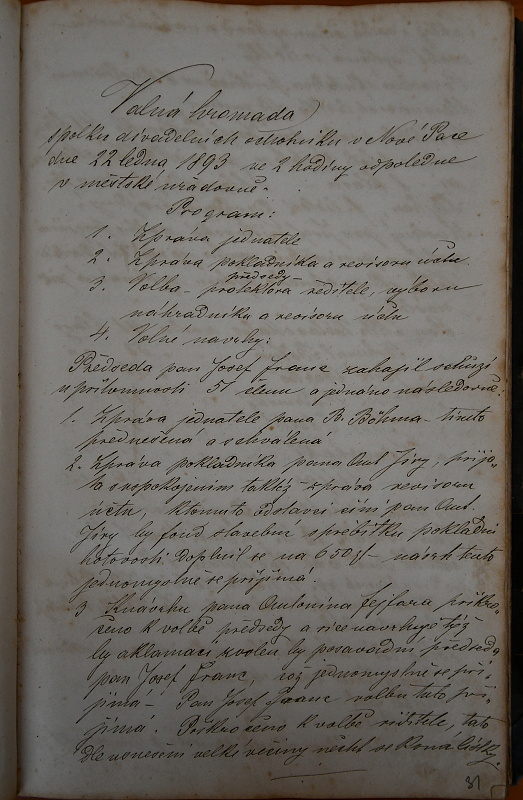 Valná hromada
spolku divadelních ochotníku v Nové Pace
dne 22 ledna 1893 ve 2 hodiny odpoledne
v městské uradovně.
Program:
1. Zpráva jednatele
2. Zpráva pokladníka a revisoru účtu
předsedy
3. Volba – protektora ředitele, výboru
náhradníka a revisoru účtu
4. Volné navrhy:
Předseda pan Josef Franc zahajil schůzi
u přítomnosti 51 členu a jednáno následovně:
1. Zpráva jednatele pana B. Böhma – tímto
přednešena a schválená
2. Zpráva pokladníka pana Ant Jíry, přija„
ta s uspokojením taktéž zpráva revisoru
účtu, k tomuto odstavci činí pan Ant.
Jíry by fond stavební z přebitku pokladní
hotovosti doplnil se na 650 zl – návrh tento
jednomyslně se přijímá.
3 K návrhu pana Antonína Fejfara přikro„
čeno k volbě předsedy a sice navrhuje týž
by aklamací zvolen by posavadní předseda
pan Josef Franc, což jednomyslně se při„
jímá – Pan Josef Franc volbu tuto při„
jíma. Přikročeno k volbě ředitele, tato
dle usnešení velké většiny nechť se koná lístky.
31